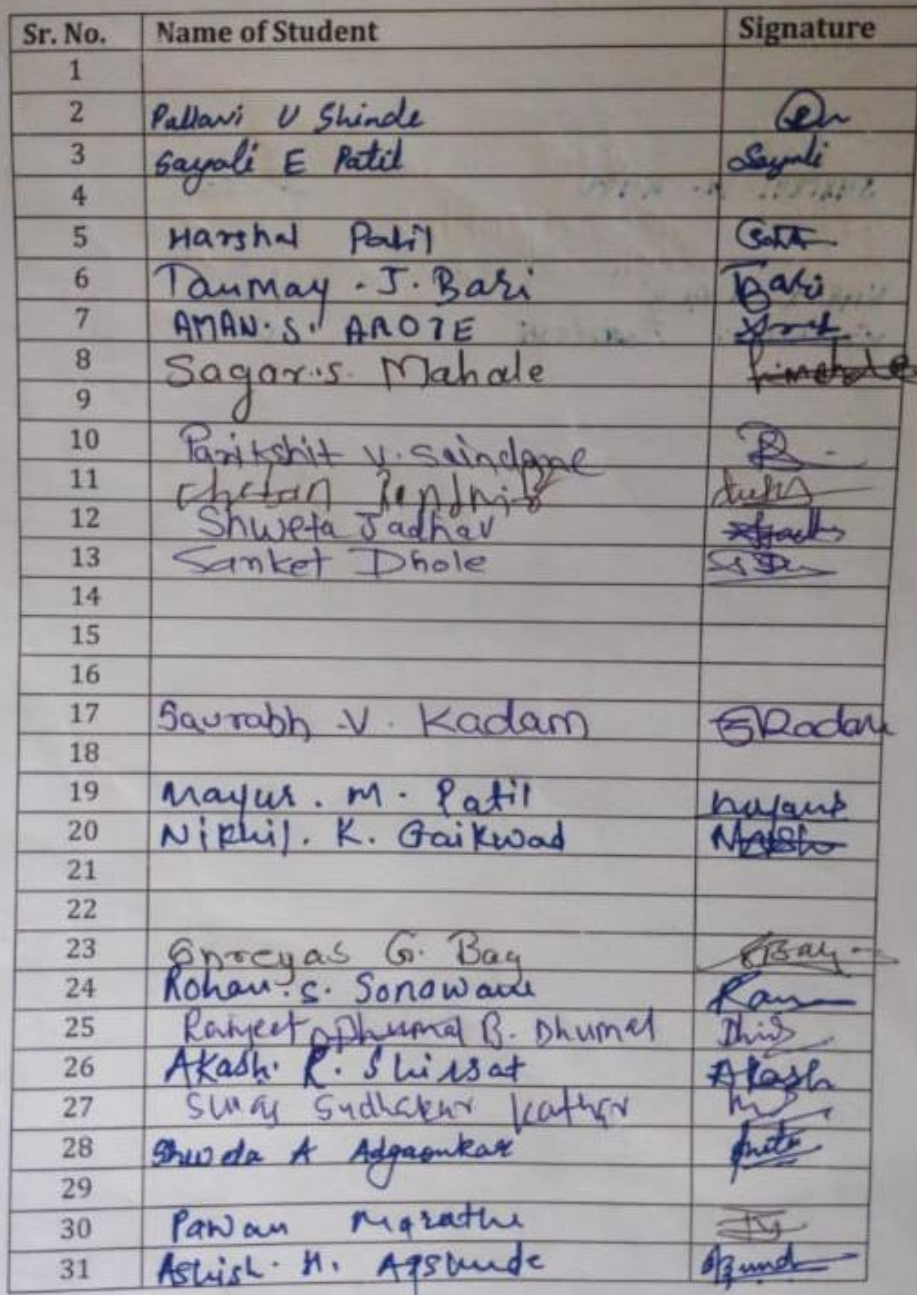 Sr. No. Name of Student Signature
1
2 Pallavi U Shinde
3 Sayali E Patil Sayali
4
5 Harshal Patil
6 Tanmay . J. Bari Bari
7 AMAN.S. AROTE
8 Sagar.s. Mahale
9
10 Parikshit V. Saindane
11 Chetan
12 Shweta Jadhav
13 Sanket Dhole
14
15
16
17 Saurabh .V. Kadam SKadam
18
19 Mayur . M. Patil
20 Nikhil. K. Gaikwad
21
22
23 Shreyas G. Bag
24 Rohan.S. Sonawane
25 Ranjeet Dhumal B. Dhumal
26 Akash. R. Shirsat Akash
27 Suraj Sudhakar Kathar
28 Shweta A Adgaonkar
29
30 Pawan Marathe
31 Ashish. H.